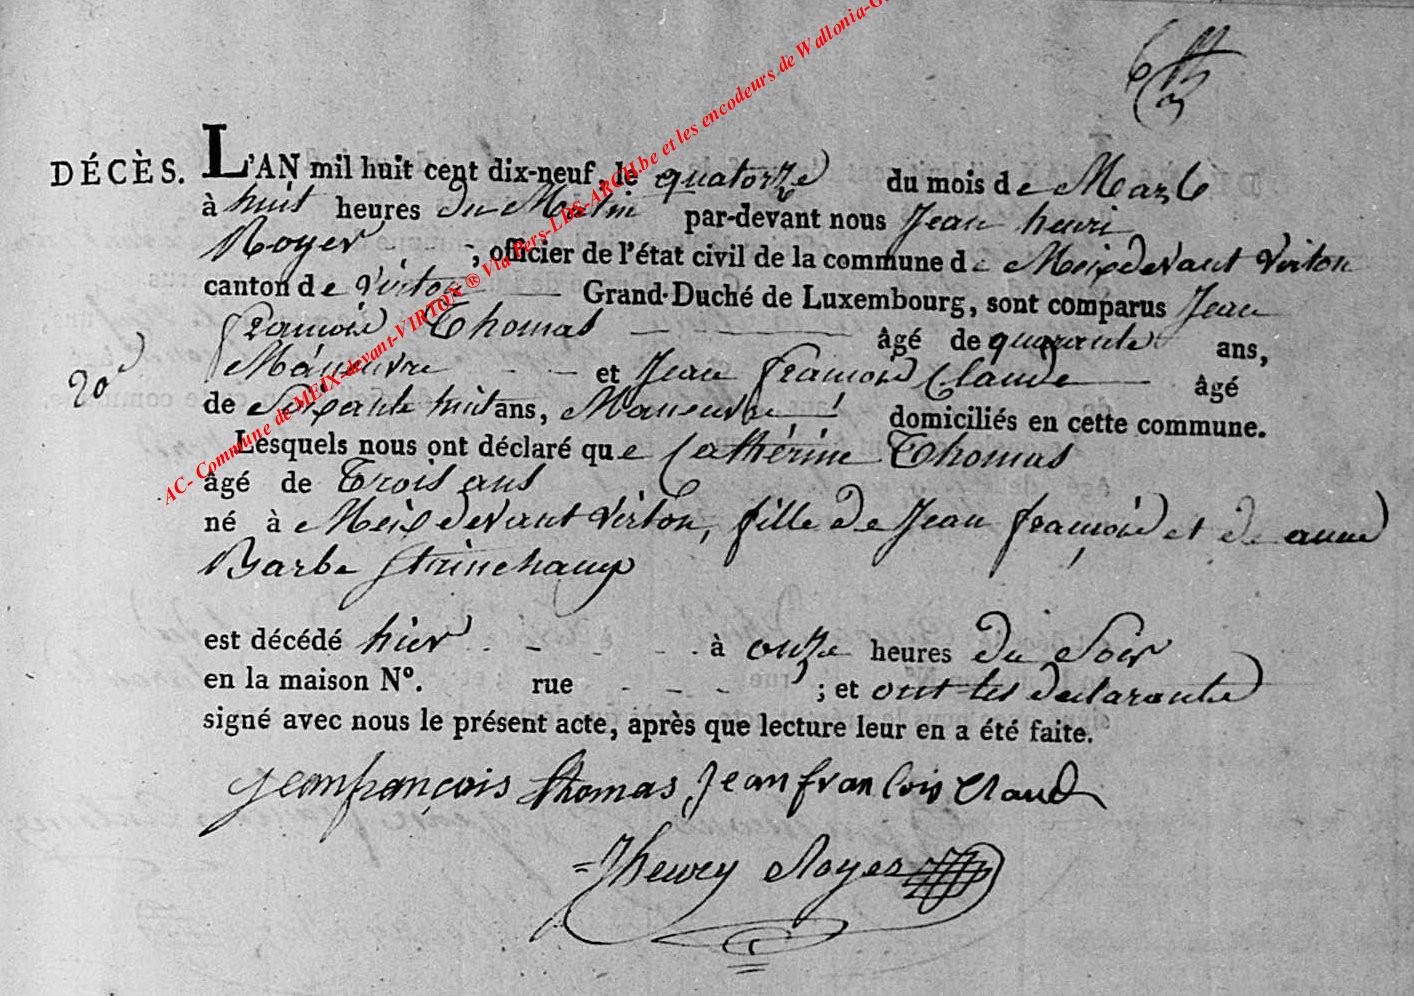 DÉCÈS. L'AN mil huit cent dix-neuf, le quatorze du mois de Mars
à huit heures du Matin par-devant nous Jean henri
Royer ; officier de l'état civil de la commune de Meix devant Virton
canton de Virton Grand-Duché de Luxembourg, sont comparus Jean
françois Thomas âgé de quarante ans,
20
Maneuvre et Jean françois Claude âgé
de soixante huit ans, Maneuvre domiciliés en cette commune.
Lesquels nous ont déclaré que Cathérine Thomas
âgé de trois ans
né à Meix devant virton, fille de Jean françois et de anne
Barbe
est décédé hier à onze heures du Soir
en la maison N°. rue ; et ont les declarants
signé avec nous le présent acte, après que lecture leur en a été faite.
Jean françois thomas Jean francois Claud
Jhenry Royer
AC- Commune de MEIX-devant-VIRTON ® Via Pers-LDS-ARCH.be et les encodeurs de Wallonia-G